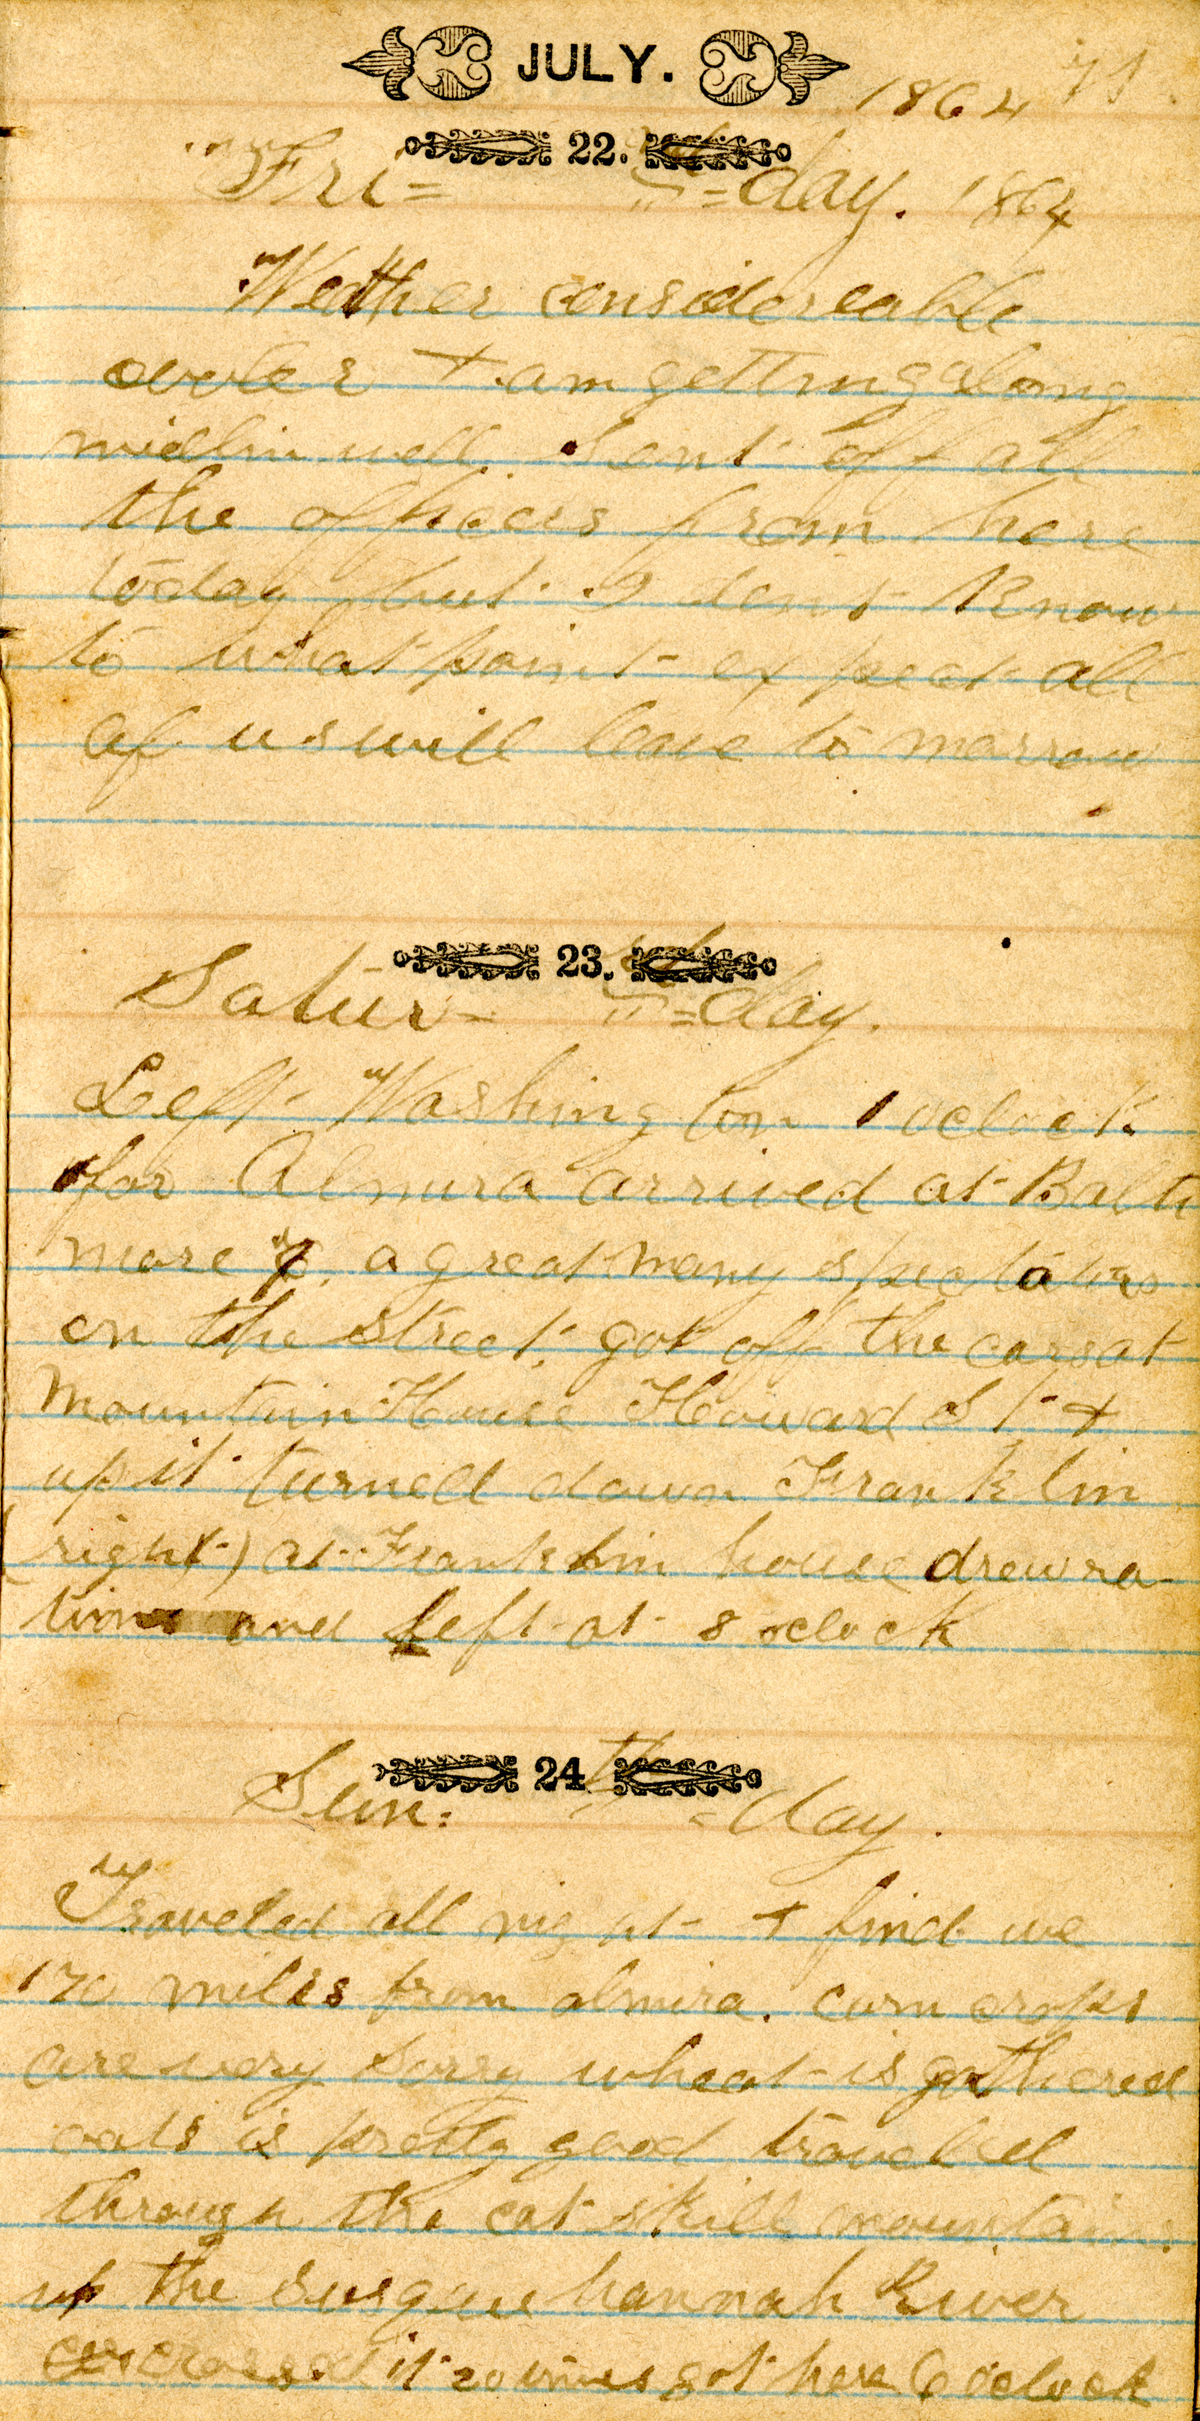 JULY.
1864
22.
Fri= th =day. 1864
Weather considereable
cooler + am getting along
midlin well. Sent off all
the officers from here
today but I dont Know
to what point expect all
of us will leave to morrow
23.
Satur= =day.
Left Washington 1 oclock
for Almira arrived at Balti
more a great many spectators
on the street, got off the cars at
Mountain House Howard St +
up it turned down Franklin
(right) at Franklin house drew ra-
tions and left at 8 oclock
24
Sun= th =day.
Traveled all night + find we
170 miles from almira. corn crops
are very sorry wheat is gathered
oats is pretty good traveled
through the cat skill mountains
up the Susquehannah River
crossed it 20 times got here 6 oclock